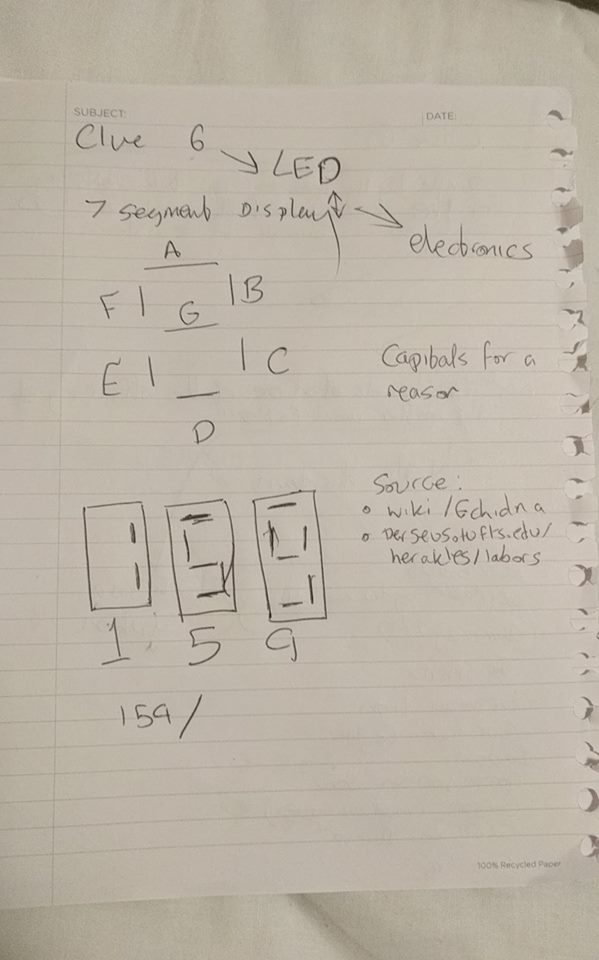 SUBJECT:
DATE:
Clue 6
LED
7 segment Display
electronics
A
F
B
G
E
C
D
Capitals for a
reason
Source:
wiki/Echidna
perseus.tufts.edu/
herakles/labors
1 5 9
159/
100% Recycled Paper